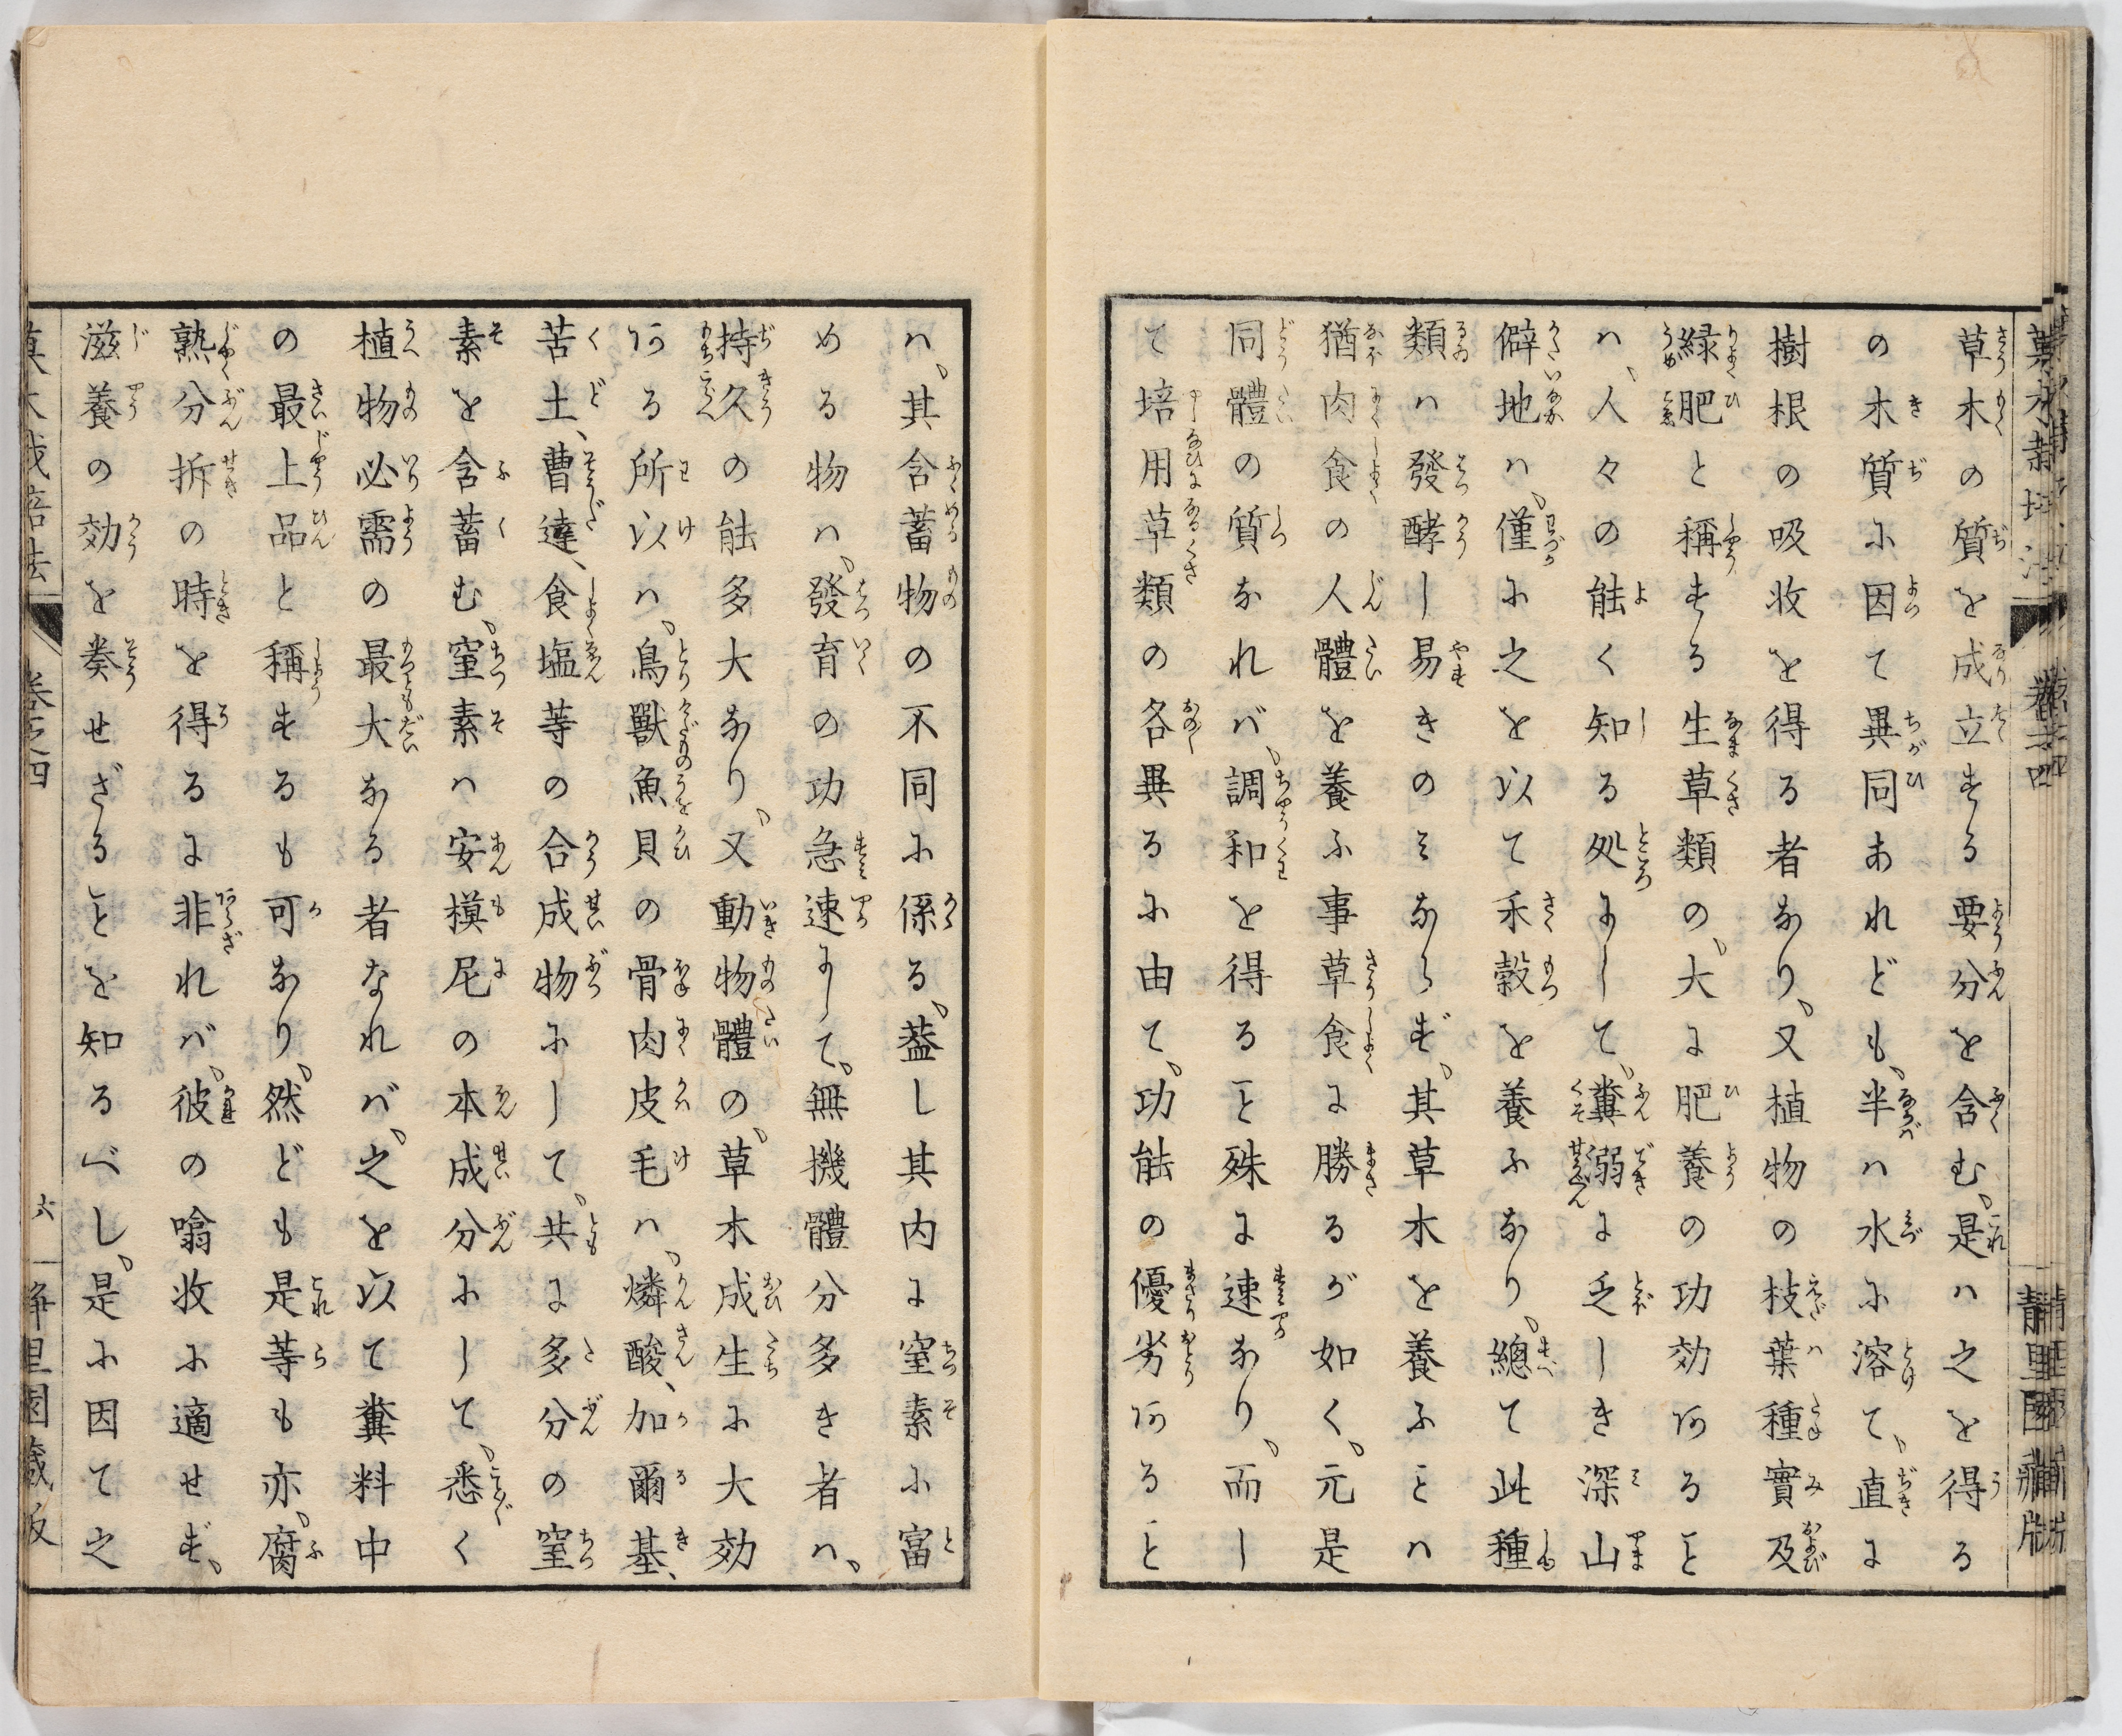 草木の質を成立する要分を含む、是ハ之を得る
の木質に因て異同あれども、半ハ水に溶て、直に
樹根の吸收を得る者なり、又植物の枝葉種實及
緑肥と稱する生草類の、大に肥養の功効あること
ハ、人々の能く知る処にして、糞溺に乏しき深山
僻地ハ、僅に之を以て禾穀を養ふなり、總て此種
類ハ發酵し易きのミならず、其草木を養ふことハ
猶肉食の人體を養ふ事草食に勝るが如く、元是
同體の質なれバ、調和を得ること殊に速なり、而し
て培用草類の各異るに由て、功能の優劣あること
ハ、其含蓄物の不同に係る、蓋し其内に窒素に富
める物ハ、發育の功急速にして、無機體分多き者ハ、
持久の能多大なり、又動物體の、草木成生に大効
ある所以ハ、鳥獸魚貝の骨肉皮毛ハ、燐酸、加爾基、
苦土、曹達、食塩等の合成物にして、共に多分の窒
素を含蓄む、窒素ハ安模尼の本成分にして、悉く
植物必需の最大なる者なれバ、之を以て糞料中
の最上品と稱するも可なり、然ども是等も亦、腐
熟分拆の時を得るに非れバ、彼の噏收に適せず、
滋養の効を奏せざることを知るべし、是に因て之
卷之四
六